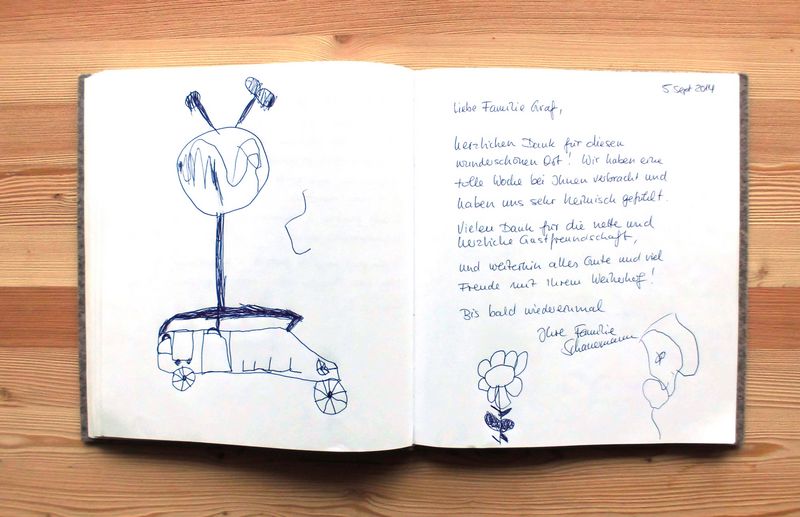 5. Sept 2014
Liebe Familie Graf,
herzlichen Dank für diesen
wunderschönen Ort! Wir haben eine
tolle Woche bei Ihnen verbracht und
haben uns sehr heimisch gefühlt.
Vielen Dank für die nette und
herzliche Gastfreundschaft,
und weiterhin alles Gute und viel
Freude mit Ihrem Weiherhof!
Bis bald wiedereinmal
Ihre Familie
Schauermann